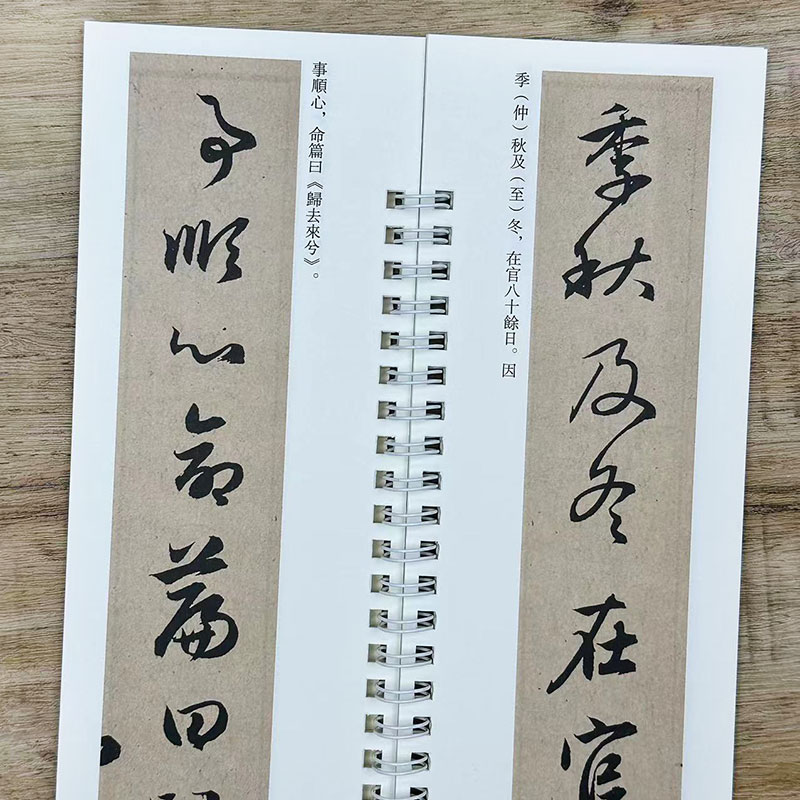 季秋及冬在官
季（仲）秋及（至）冬，在官八十餘日。因
事順心，命篇曰《歸去來兮》。
事順心命篇曰